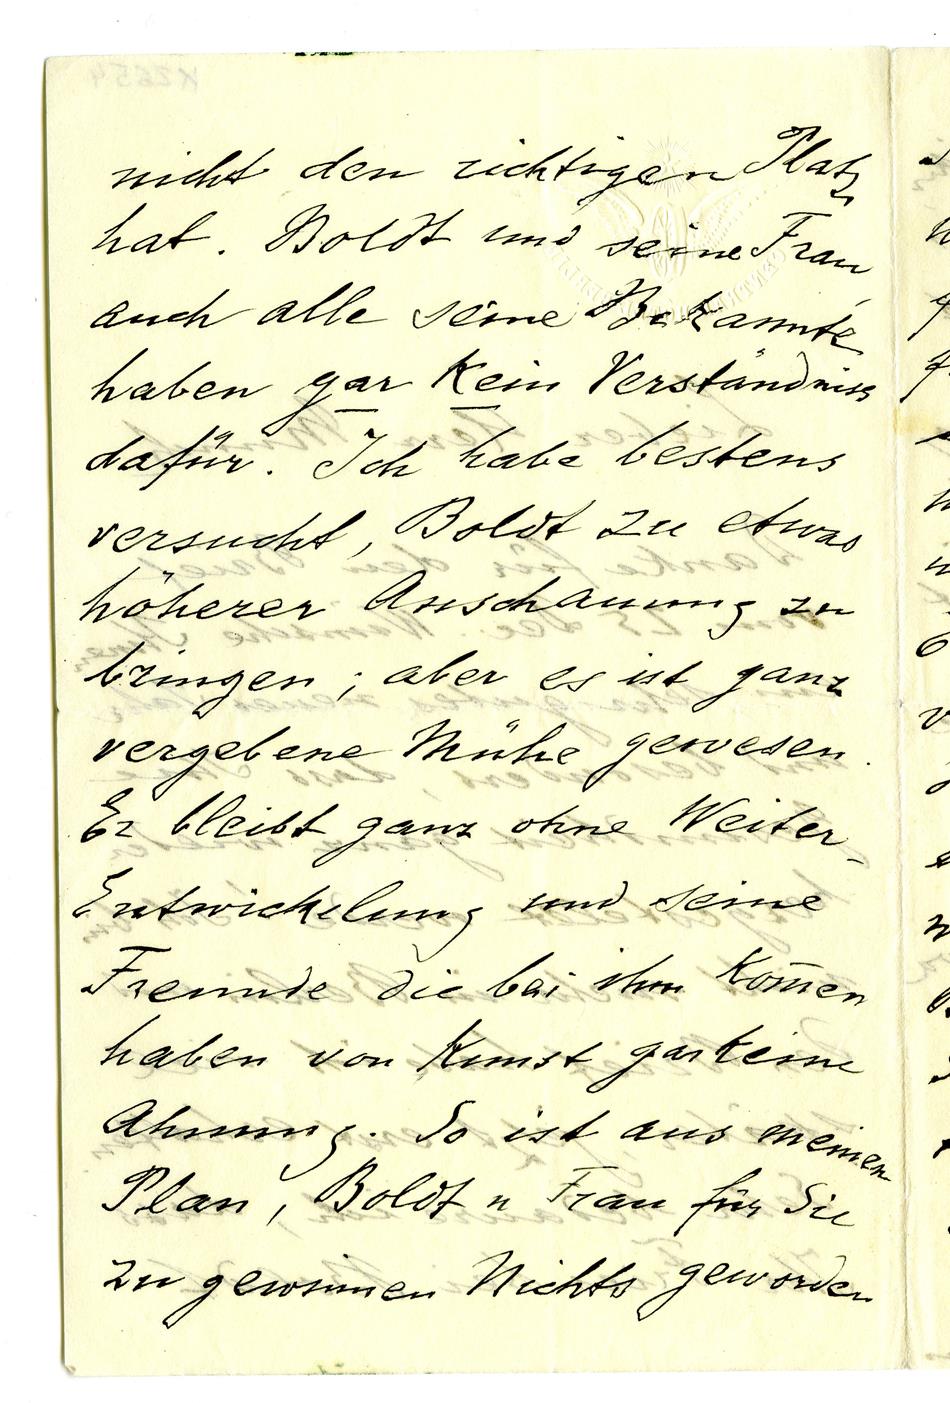 nicht den richtigen Platz
hat. Boldt und seine Frau
auch alle seine Bekannte
haben gar kein Verständniss
dafür. Ich habe bestens
versucht, Boldt zu etwas
höherer Anschauung zu
bringen; aber es ist ganz
vergebene Mühe gewesen.
Er bleibt ganz ohne Weiter-
Entwickelung und seine
Freunde die bei ihm kom̄en
haben von Kunst gar keine
Ahnung. So ist aus meinem
Plan, Boldt u Frau für Sie
zu gewinnen Nichts geworden